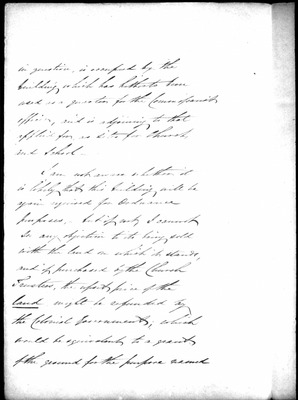 in question, is occupied by the
building which has hitherto been
used as a quarters for the Commissariat
officer, and is adjoining to that
applied for, as site for Church
and School —
I am not aware whether it
is likely that this building will be
again required for Ordnance
purposes — but if not, I cannot
see any objection to its being sold
with the land on which it stands,
and if purchased by the Church
Trustees, the upset price of the
land might be refunded by
the Colonial Government, which
would be equivalent to a grant
of the ground for the purpose named